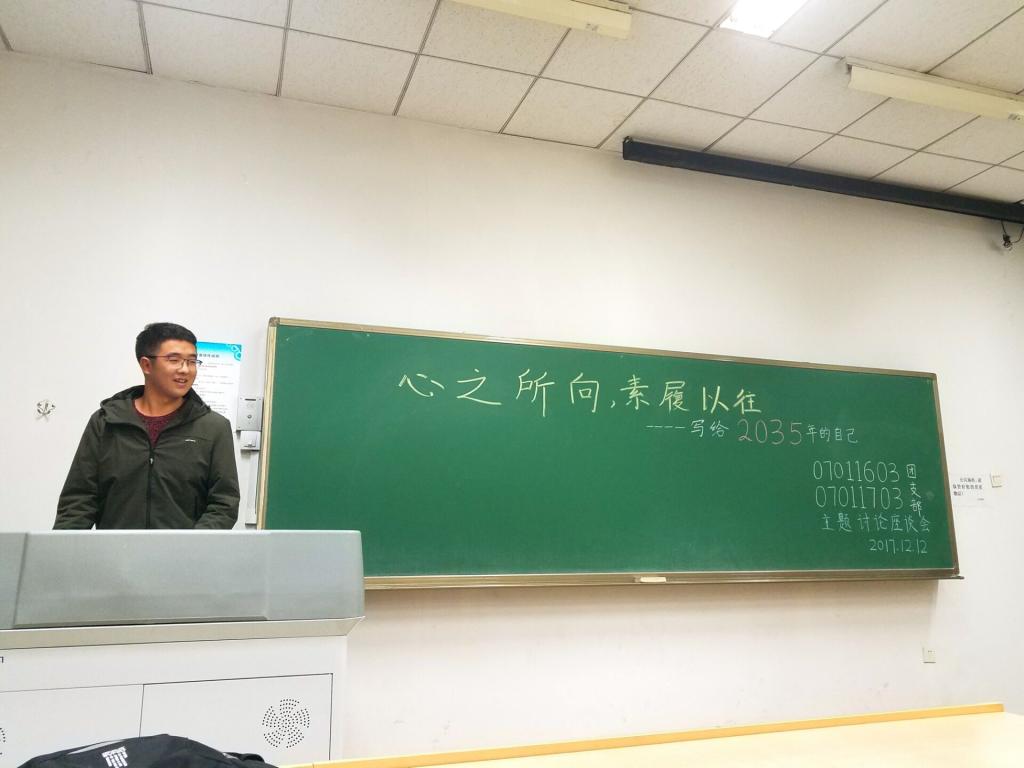 心之所向,素履以往
----写给2035年的自己
07011603
07011703
团支部
主题讨论座谈会
2017.12.12